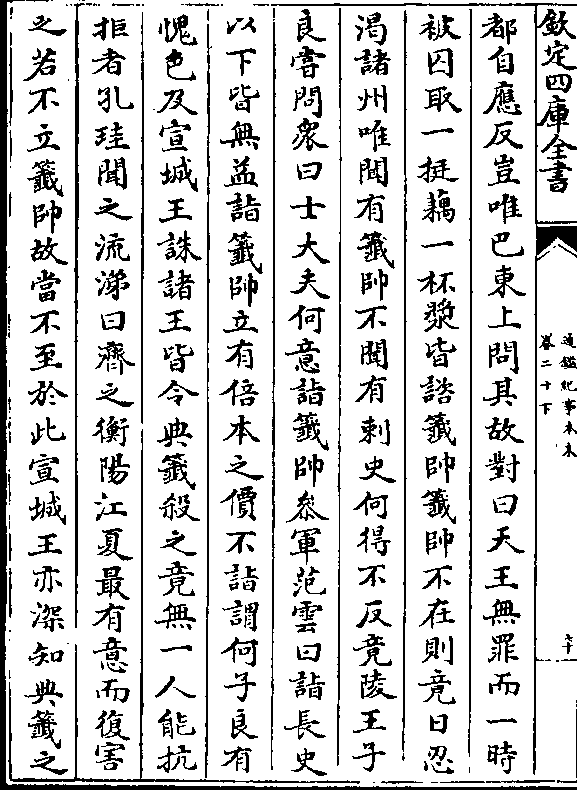 欽定四庫全書
通鑑紀事本末
卷二十下
七十
都自應反豈唯巴東上問其故對曰天王無罪而一時
被囚取一挺藕一杯漿皆諮籖帥籖帥不在則竟日忍
渴諸州唯聞有籖帥不聞有刺史何得不反竟陵王子
良嘗問衆曰士大夫何意詣籖帥叅軍范雲曰詣長史
以下皆無益詣籖帥立有倍本之價不詣謂何子良有
愧色及宣城王誅諸王皆令典籖殺之竟無一人能抗
拒者孔珪聞之流涕曰齊之衡陽江夏最有意而復害
之若不立籖帥故當不至於此宣城王亦深知典籖之